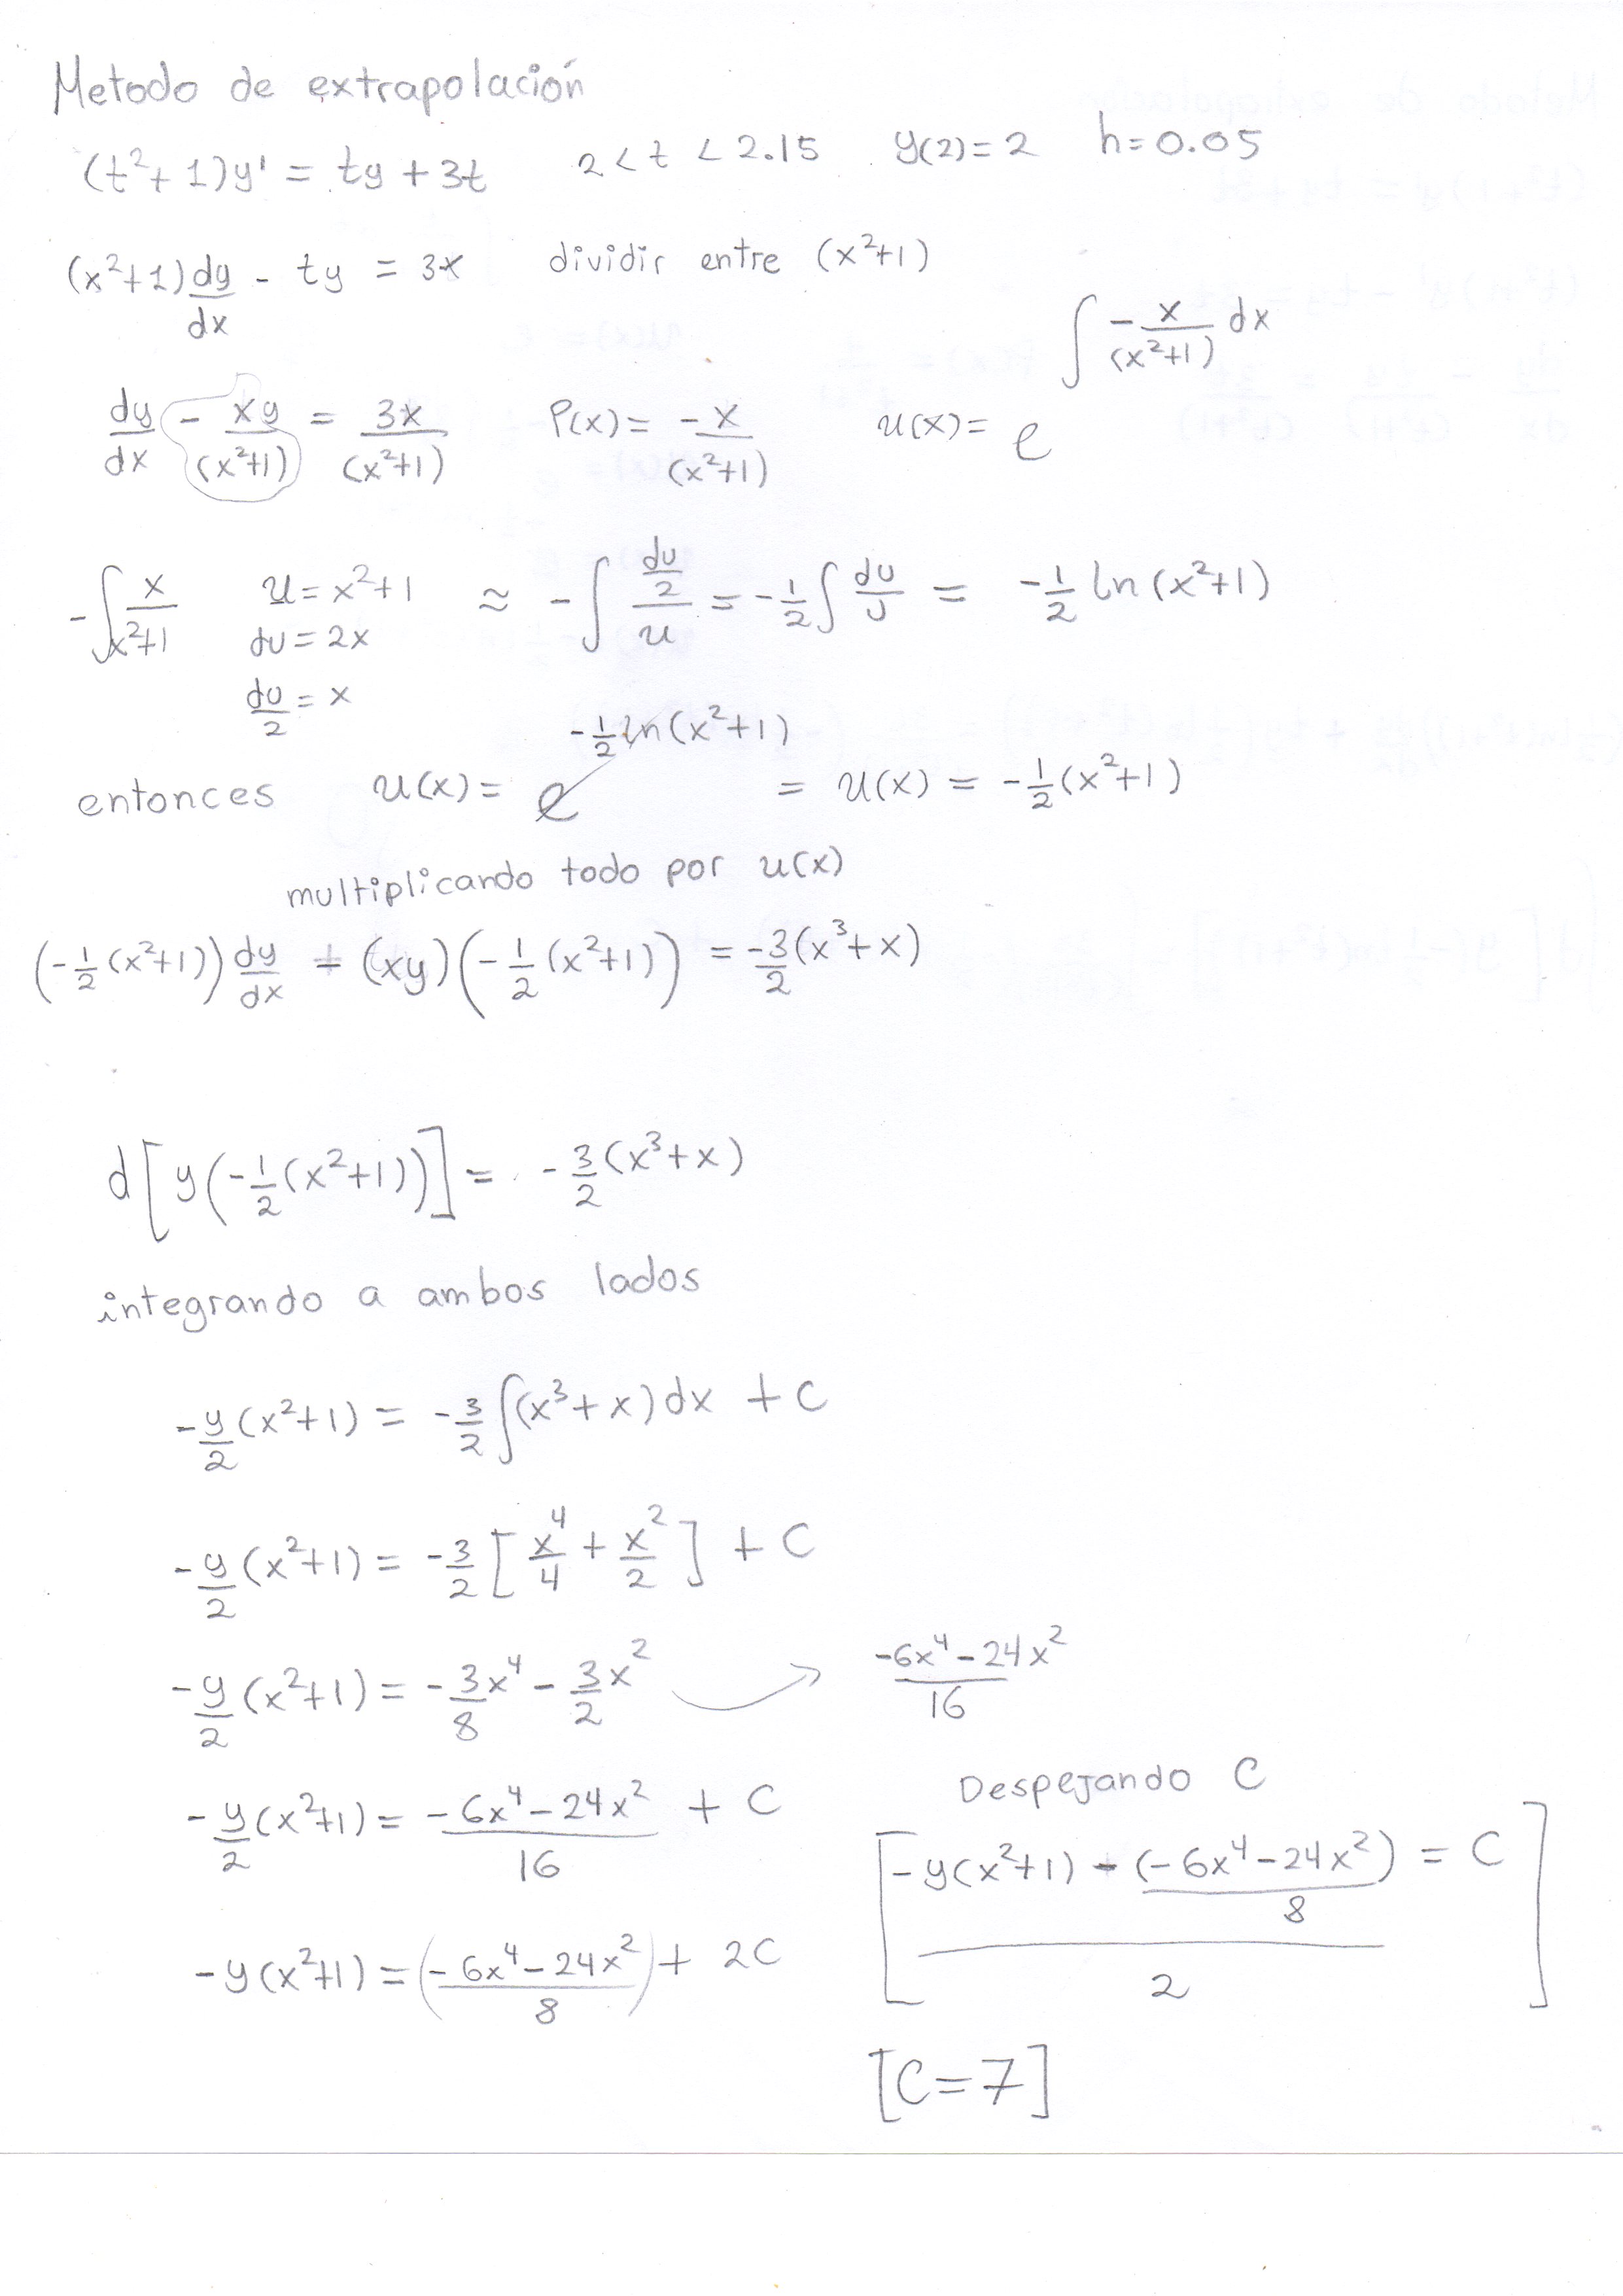 Metodo de extrapolación
(t²+1)y' = ty + 3t 2 < t < 2.15 y(2) = 2 h = 0.05
(x²+1) dy/dx - ty = 3x dividir entre (x²+1)
dy/dx - xy/(x²+1) = 3x/(x²+1) P(x) = -x/(x²+1) u(x) = e^(∫ -x/(x²+1) dx)
-∫ x/(x²+1) u = x²+1 ≈ -∫ (du/2)/u = -1/2 ∫ du/u = -1/2 ln(x²+1)
du = 2x
du/2 = x
entonces u(x) = e^(-1/2 ln(x²+1)) = u(x) = -1/2(x²+1)
multiplicando todo por u(x)
(-1/2(x²+1)) dy/dx + (xy)(-1/2(x²+1)) = -3/2(x³+x)
d[y(-1/2(x²+1))] = -3/2(x³+x)
integrando a ambos lados
-y/2(x²+1) = -3/2 ∫(x³+x)dx + C
-y/2(x²+1) = -3/2 [x⁴/4 + x²/2] + C
-y/2(x²+1) = -3/8x⁴ - 3/2x² → (-6x⁴-24x²)/16
-y/2(x²+1) = (-6x⁴-24x²)/16 + C
-y(x²+1) = ((-6x⁴-24x²)/8) + 2C
Despejando C
[(-y(x²+1) - (-6x⁴-24x²)/8)/2 = C]
[C=7]